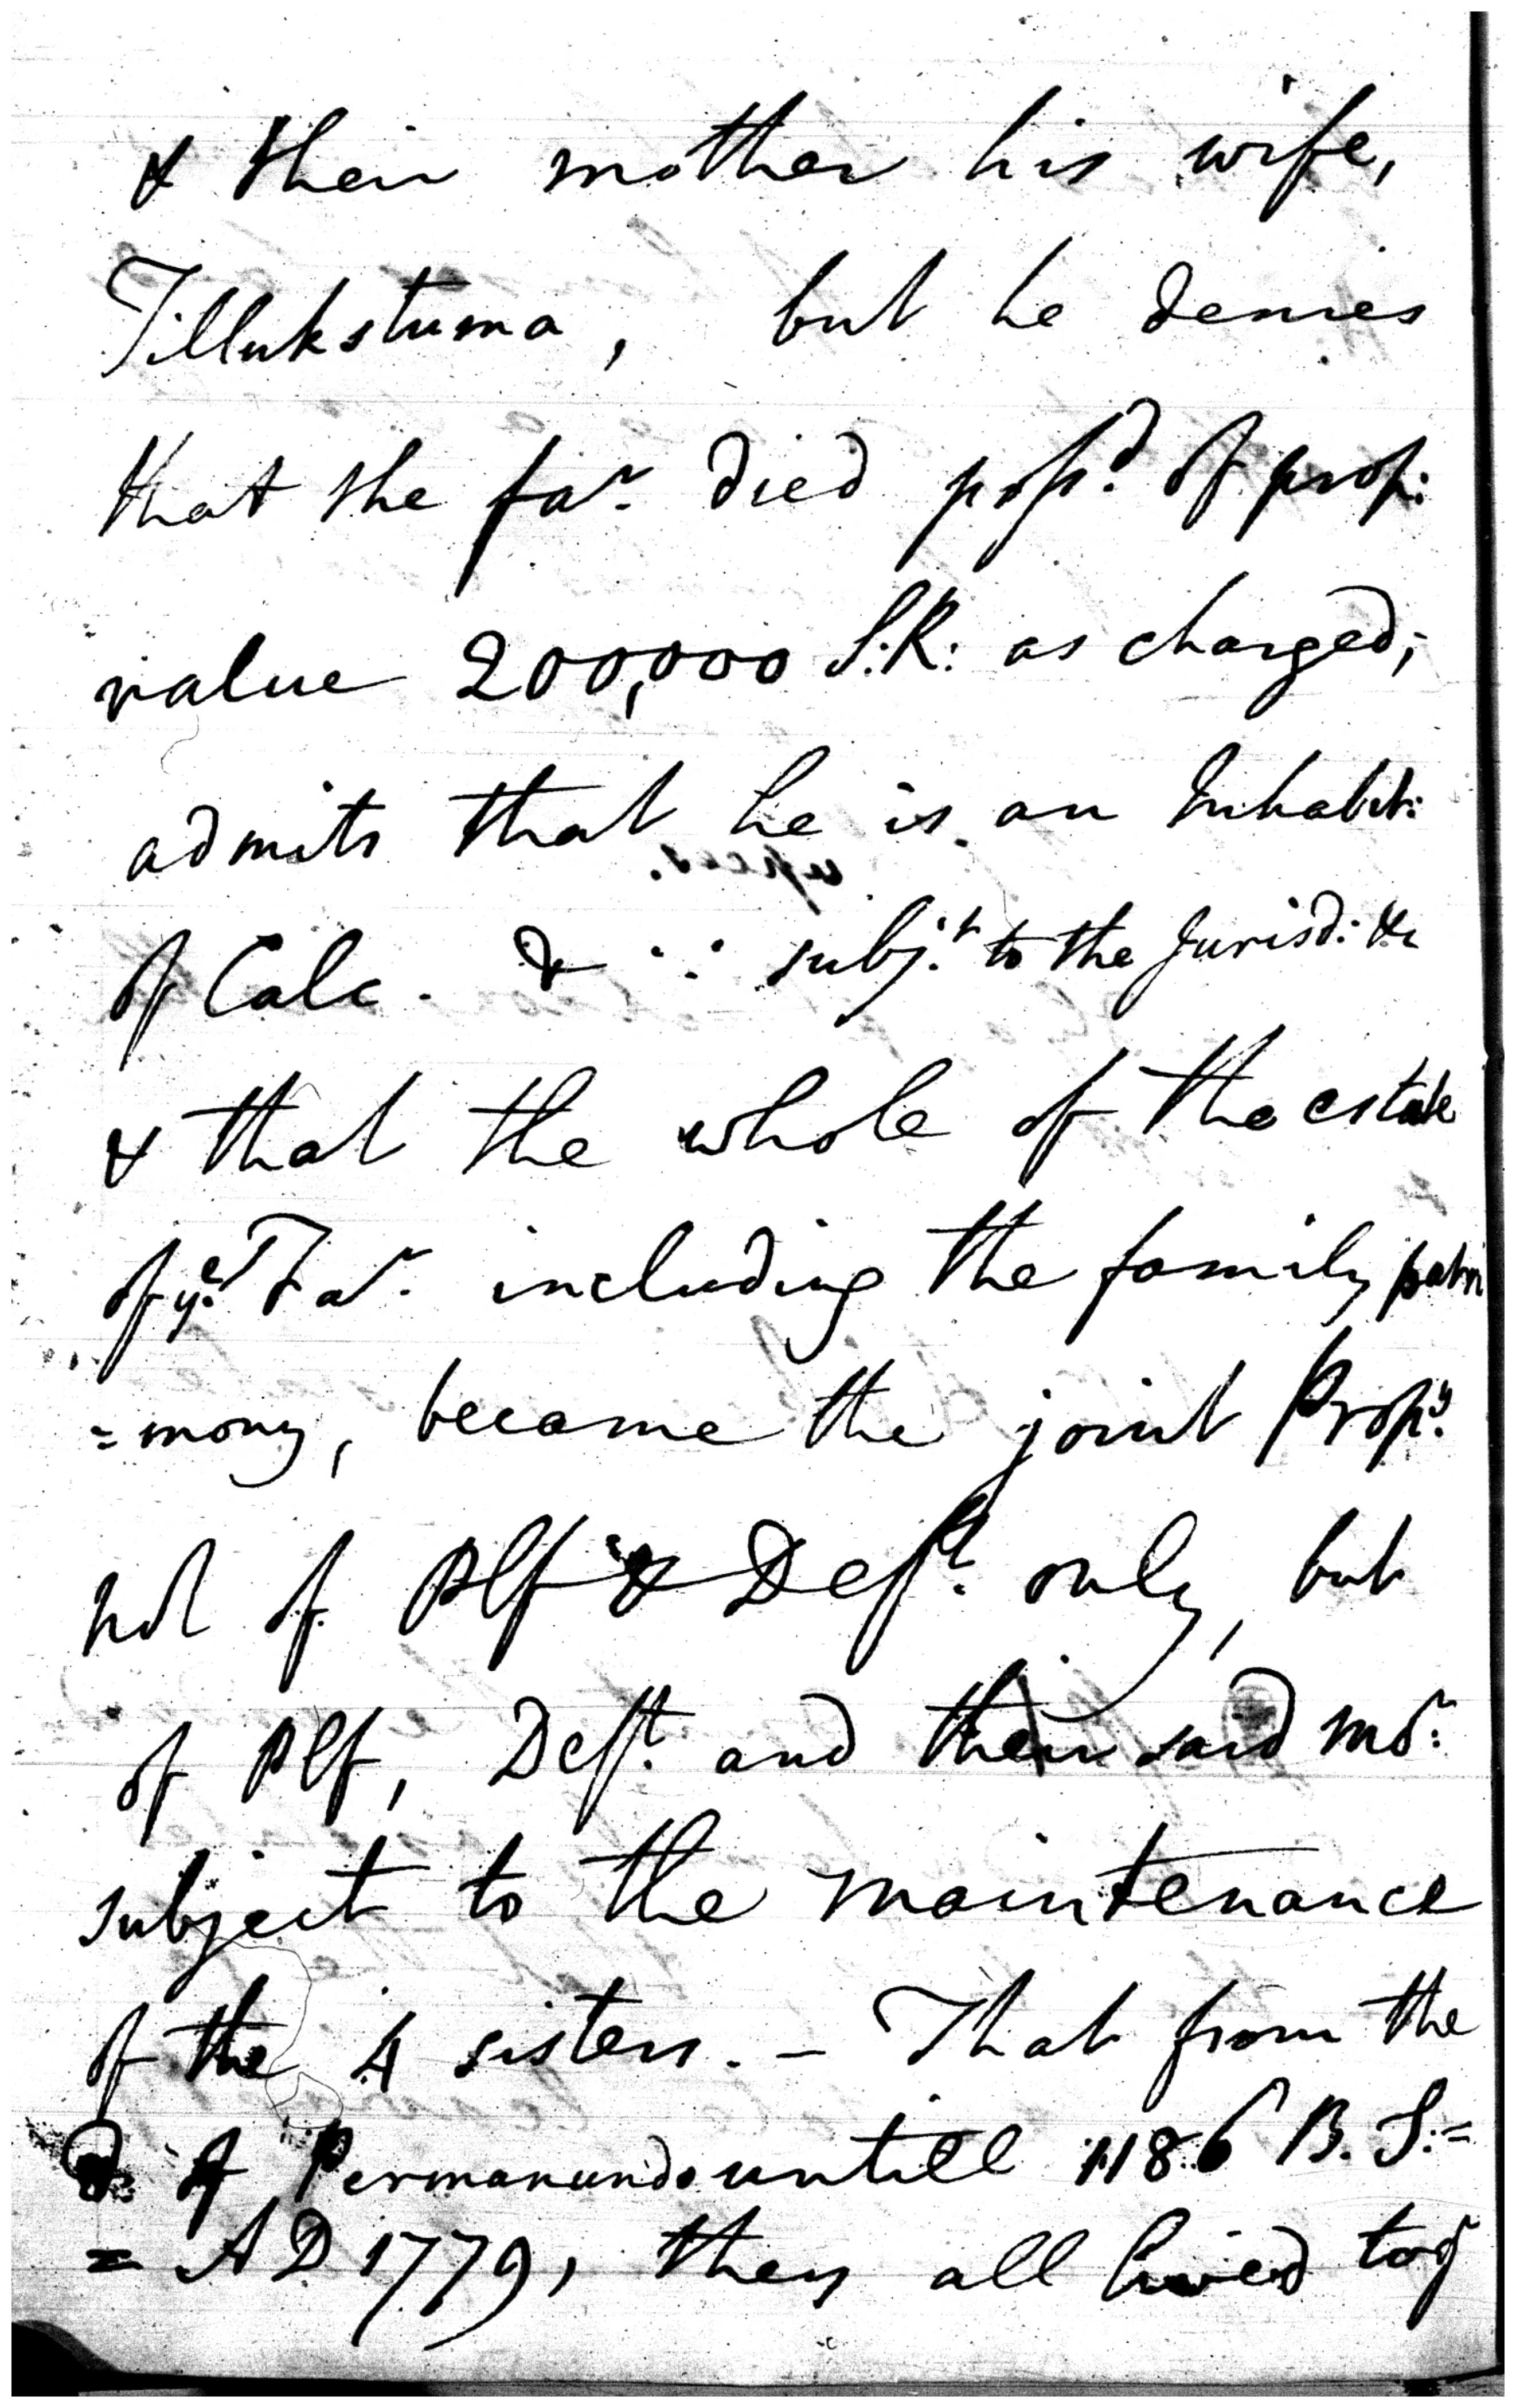 & their mother his wife,
Tillukstuma, but he denies
that the far. died possd. of prop:
value 200,000 S:R: as charged;
admits that he is an Inhabit:
of Calc. & ∴ subjt. to the Jurisd: &c
& that the whole of the estate
of ye. Far. including the family patri
=mony, became the joint Propy.
not of Plf & Deft. only, but
of Plf, Deft. and their said mor.
subject to the maintenance
of the 4 sisters. - That from the
D. of Permanund. untill 1186 B.S:=
= AD 1779, they all lived togr